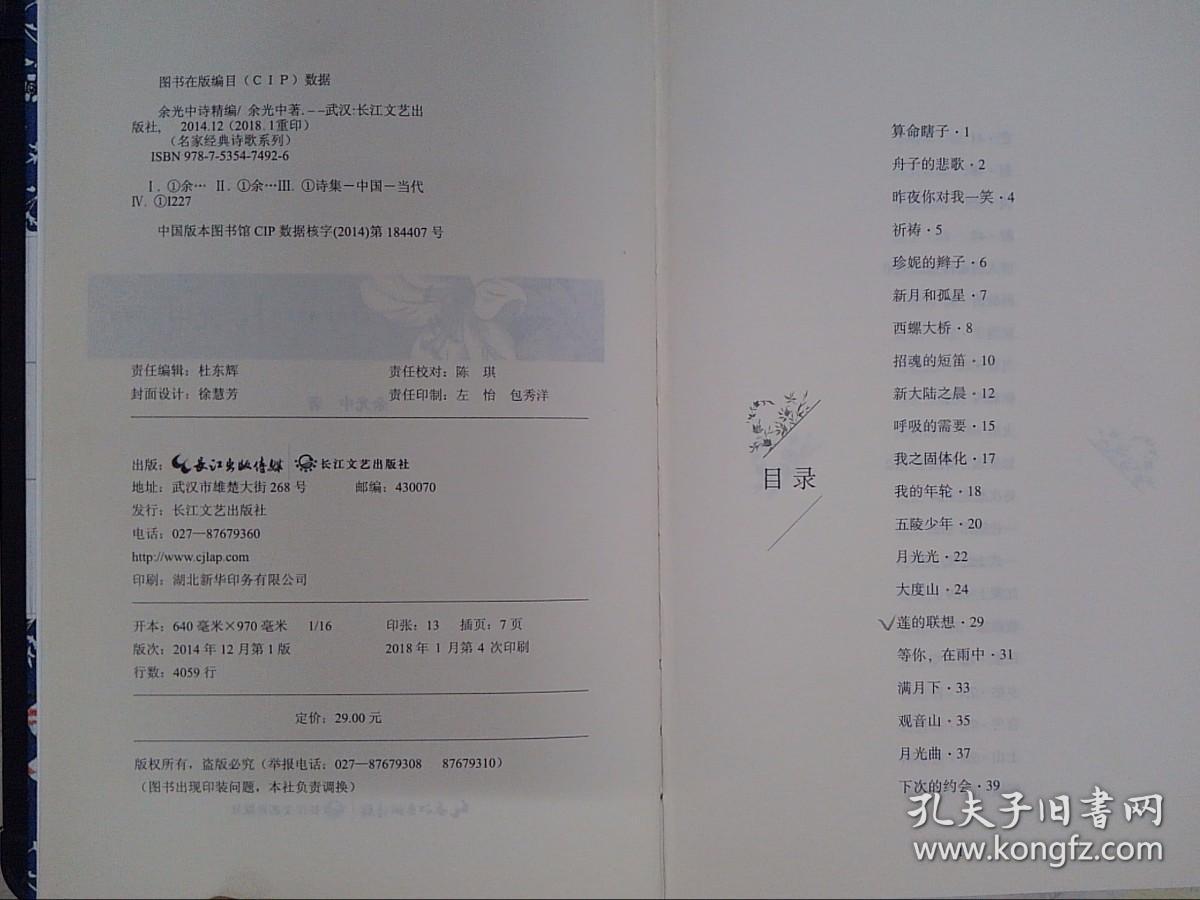 图书在版编目（CIP）数据
余光中诗精编/ 余光中著. --武汉:长江文艺出
版社, 2014.12 (2018.1重印)
（名家经典诗歌系列）
ISBN 978-7-5354-7492-6
Ⅰ. ①余… Ⅱ. ①余…Ⅲ. ①诗集－中国－当代
Ⅳ. ①I227
中国版本图书馆 CIP 数据核字(2014)第 184407 号
责任编辑：杜东辉 责任校对：陈 琪
封面设计：徐慧芳 责任印制：左 怡 包秀洋
出版：长江出版传媒 长江文艺出版社
地址：武汉市雄楚大街 268 号 邮编：430070
发行：长江文艺出版社
电话：027—87679360
http://www.cjlap.com
印刷：湖北新华印务有限公司
开本：640 毫米×970 毫米 1/16 印张：13 插页：7 页
版次：2014 年 12 月第 1 版 2018 年 1 月第 4 次印刷
行数：4059 行
定价：29.00 元
版权所有，盗版必究（举报电话：027—87679308 87679310）
（图书出现印装问题，本社负责调换）
目录
算命瞎子·1
舟子的悲歌·2
昨夜你对我一笑·4
祈祷·5
珍妮的辫子·6
新月和孤星·7
西螺大桥·8
招魂的短笛·10
新大陆之晨·12
呼吸的需要·15
我之固体化·17
我的年轮·18
五陵少年·20
月光光·22
大度山·24
莲的联想·29
等你，在雨中·31
满月下·33
观音山·35
月光曲·37
下次的约会·39
孔夫子旧书网
www.kongfz.com